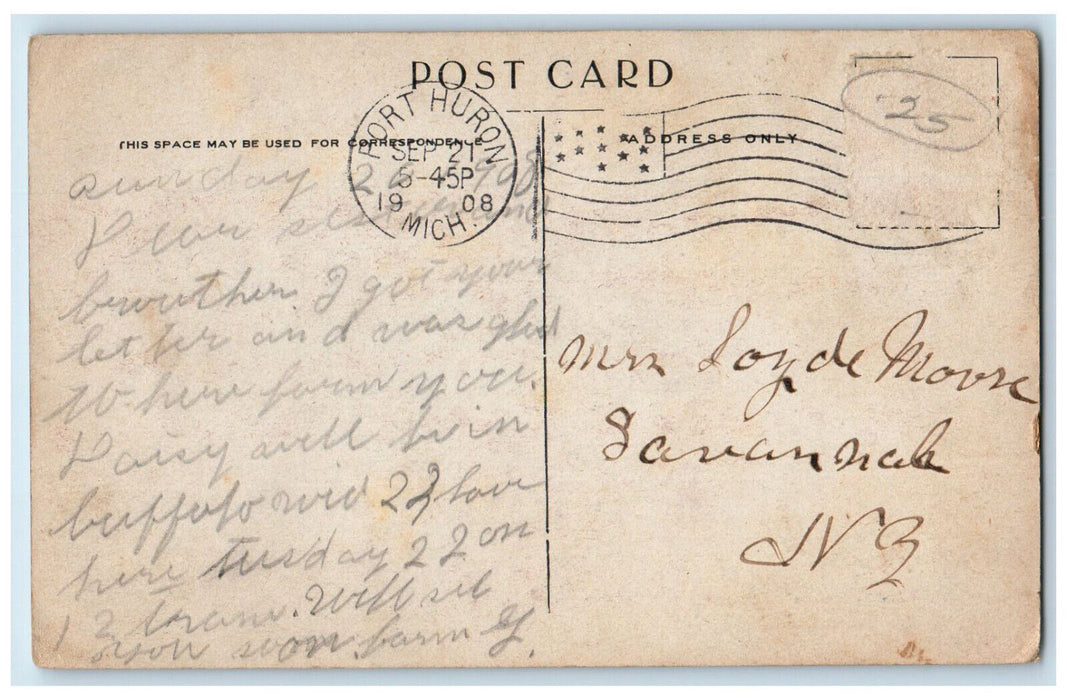 POST CARD
THIS SPACE MAY BE USED FOR CORRESPONDENCE
ADDRESS ONLY
PORT HURON
SEP 21
5-45P
1908
MICH.
25
sunday 20 1908
Dear sister and
brouther I got your
letter and was glad
to here furm you.
Daisy will be in
buffalo wid 23 leav
here tusday 22 on
12 tran. will see
you soon. furm G.
Mrs Loyde Moore
Savannah
N Y